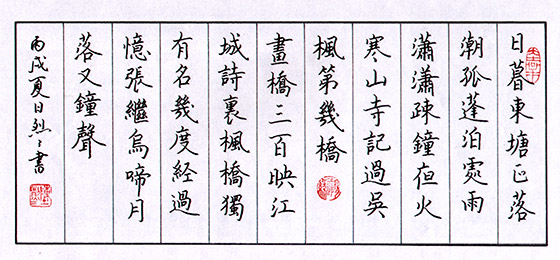 日暮東塘正落
潮孤蓬泊處雨
瀟瀟疎鐘夜火
寒山寺記過吳
楓第幾橋
畫橋三百映江
城詩裏楓橋獨
有名幾度經過
憶張繼烏啼月
落又鐘聲
丙戌夏日烈々書